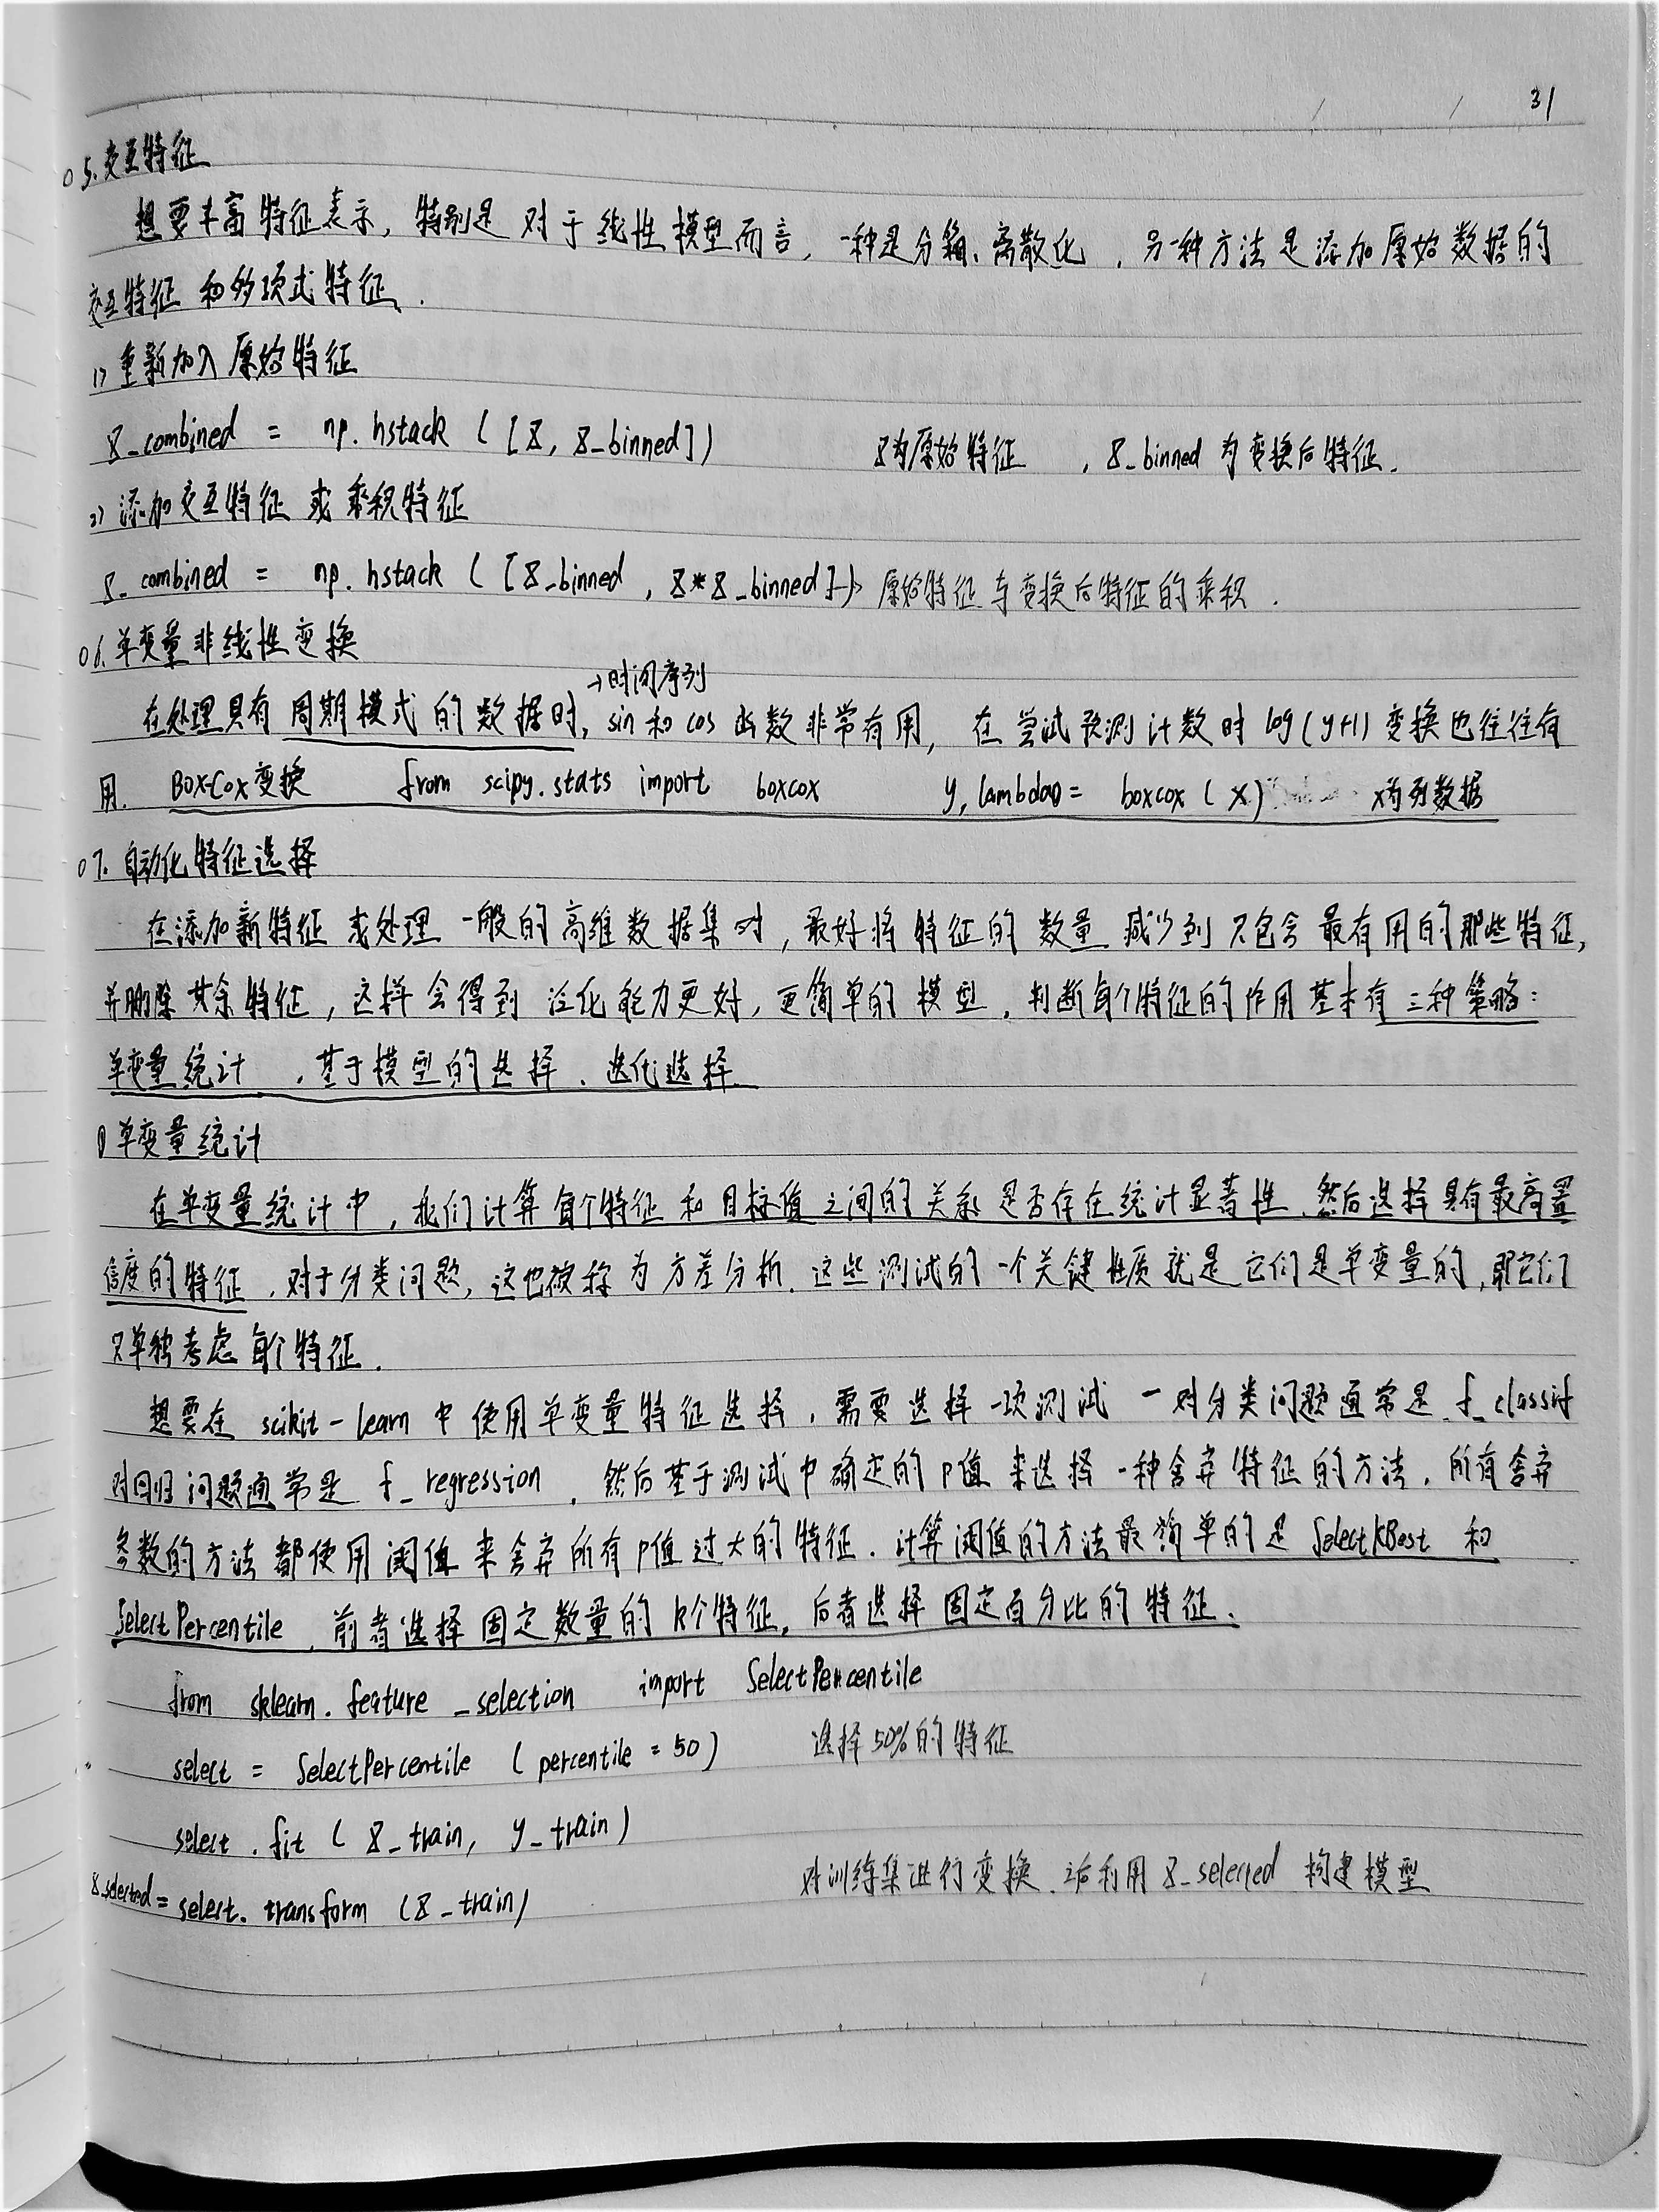 31
05.交互特征
想要丰富特征表示,特别是对于线性模型而言,一种是分箱、离散化,另一种方法是添加原始数据的
交互特征和多项式特征.
1)重新加入原始特征
X_combined = np.hstack([X, X_binned]) X为原始特征,X_binned为变换后特征.
2)添加交互特征或乘积特征
X_combined = np.hstack([X_binned, X*X_binned])→原始特征与变换后特征的乘积.
06.单变量非线性变换
→时间序列
在处理具有周期模式的数据时,sin和cos函数非常有用,在尝试预测计数时log(y+1)变换也往往有
用. BOX-Cox变换 from scipy.stats import boxcox y, lambda0 = boxcox(x) x为列数据
07.自动化特征选择
在添加新特征或处理一般的高维数据集时,最好将特征的数量减少到只包含最有用的那些特征,
并删除其余特征,这样会得到泛化能力更好,更简单的模型.判断每个特征的作用基本有三种策略:
单变量统计,基于模型的选择、迭代选择
①单变量统计
在单变量统计中,我们计算每个特征和目标值之间的关系是否存在统计显著性,然后选择具有最高置
信度的特征.对于分类问题,这也被称为方差分析.这些测试的一个关键性质就是它们是单变量的,即它们
只单独考虑每个特征.
想要在scikit-learn中使用单变量特征选择,需要选择一项测试一对分类问题通常是f_classif
对回归问题通常是f_regression.然后基于测试中确定的p值来选择一种舍弃特征的方法.所有舍弃
参数的方法都使用阈值来舍弃所有p值过大的特征.计算阈值的方法最简单的是SelectKBest和
SelectPercentile,前者选择固定数量的k个特征,后者选择固定百分比的特征.
from sklearn.feature_selection import SelectPercentile
select = SelectPercentile(percentile=50) 选择50%的特征
select.fit(X_train, y_train)
X_selected = select.transform(X_train) 对训练集进行变换.之后利用X_selected构建模型